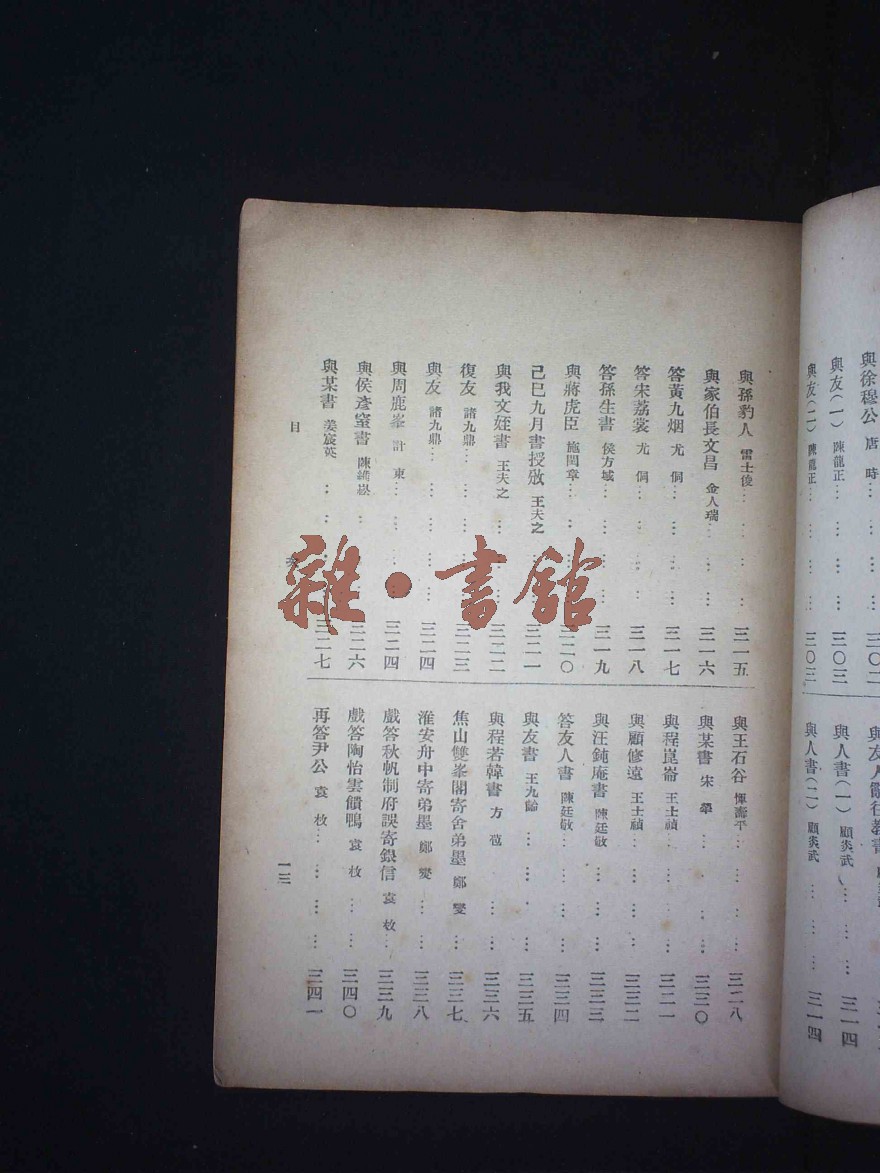 與徐穆公 唐時 … … … 三〇二
與友(一) 陳龍正 … … … 三〇三
與友(二) 陳龍正 … … … 三〇三
與人書(一) 顧炎武 … … … 三一四
與人書(二) 顧炎武 … … … 三一四
與孫豹人 雷士俊 … … … 三一五
與家伯長文昌 金人瑞 … … … 三一六
答黃九烟 尤侗 … … … 三一七
答宋荔裳 尤侗 … … … 三一八
答孫生書 侯方域 … … … 三一九
與蔣虎臣 施閏章 … … … 三二〇
己巳九月書授攽 王夫之 … … 三二一
與我文姪書 王夫之 … … … 三二二
復友 諸九鼎 … … … 三二三
與友 諸九鼎 … … … 三二四
與周鹿峯 計東 … … … 三二四
與侯彥窒書 陳維崧 … … 三二六
與某書 姜宸英 … … 三二七
與王石谷 惲壽平 … … … 三二八
與某書 宋犖 … … … 三三〇
與程崑崙 王士禎 … … … 三二一
與顧修遠 王士禎 … … … 三三二
與汪鈍庵書 陳廷敬 … … … 三三三
答友人書 陳廷敬 … … … 三三四
與友書 王九齡 … … … 三三五
與程若韓書 方苞 … … … 三三六
焦山雙峯閣寄舍弟墨 鄭燮 … … 三三七
淮安舟中寄弟墨 鄭燮 … … 三三八
戲答秋帆制府誤寄銀信 袁枚 … 三三九
戲答陶怡雲饋鴨 袁枚 … … 三四〇
再答尹公 袁枚 … … … 三四一
目
一三
雜·書館